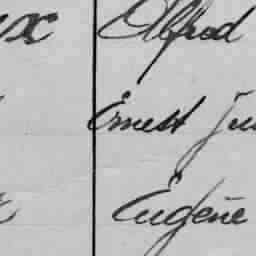 x Alfred
Ernest
Eugène